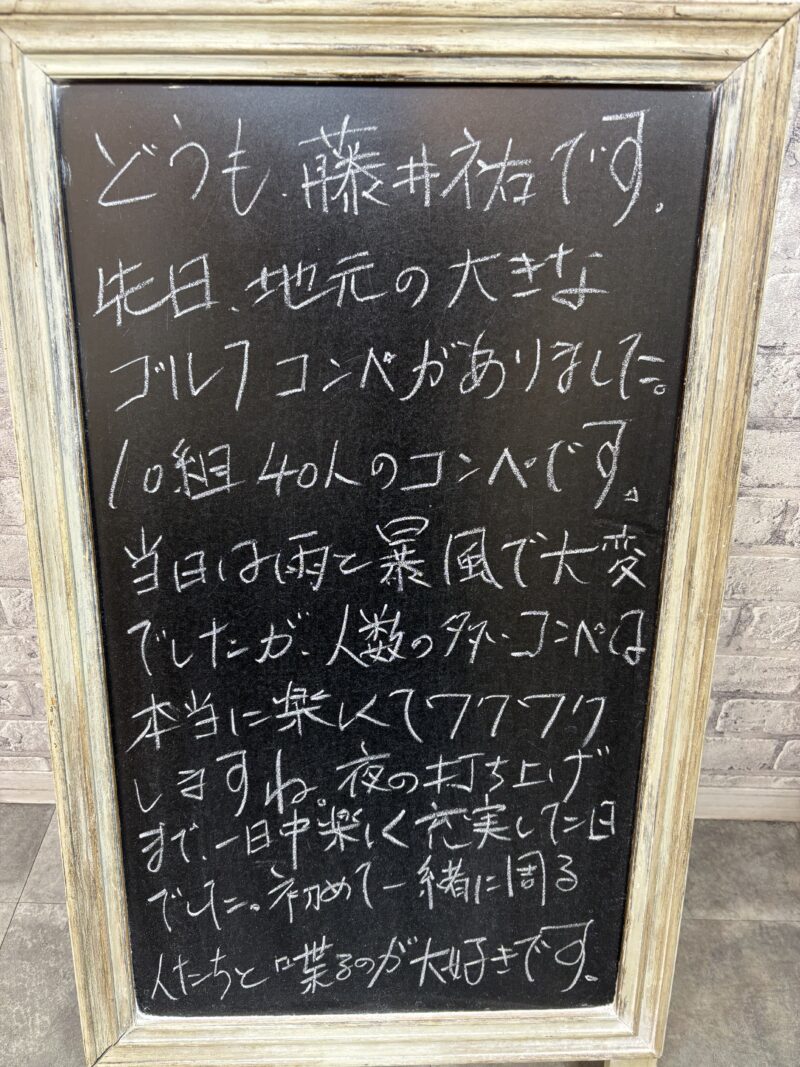 どうも、藤井祐です。
先日、地元の大きな
ゴルフコンペがありました。
10組40人のコンペです。
当日は雨と暴風で大変
でしたが、人数の多いコンペは
本当に楽しくてワクワク
しますね。夜の打ち上げ
まで、一日中楽しく充実した日
でした。初めて一緒に周る
人たちと喋るのが大好きです。